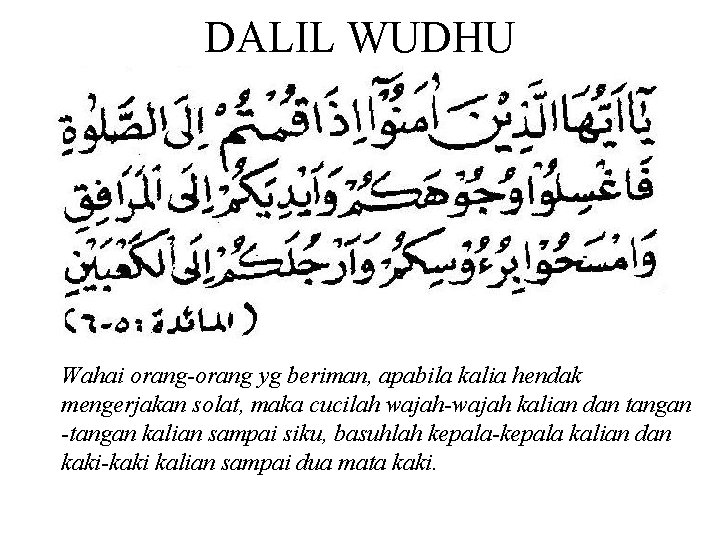 DALIL WUDHU
يَاأَيُّهَا الَّذِيْنَ اٰمَنُوْآ اِذَا قُمْتُمْ اِلَى الصَّلٰوةِ
فَاغْسِلُوْا وُجُوْهَكُمْ وَاَيْدِيَكُمْ اِلَى الْمَرَافِقِ
وَامْسَحُوْا بِرُءُوْسِكُمْ وَاَرْجُلَكُمْ اِلَى الْكَعْبَيْنِ
(المائدة : ٥-٦)
Wahai orang-orang yg beriman, apabila kalia hendak
mengerjakan solat, maka cucilah wajah-wajah kalian dan tangan
-tangan kalian sampai siku, basuhlah kepala-kepala kalian dan
kaki-kaki kalian sampai dua mata kaki.